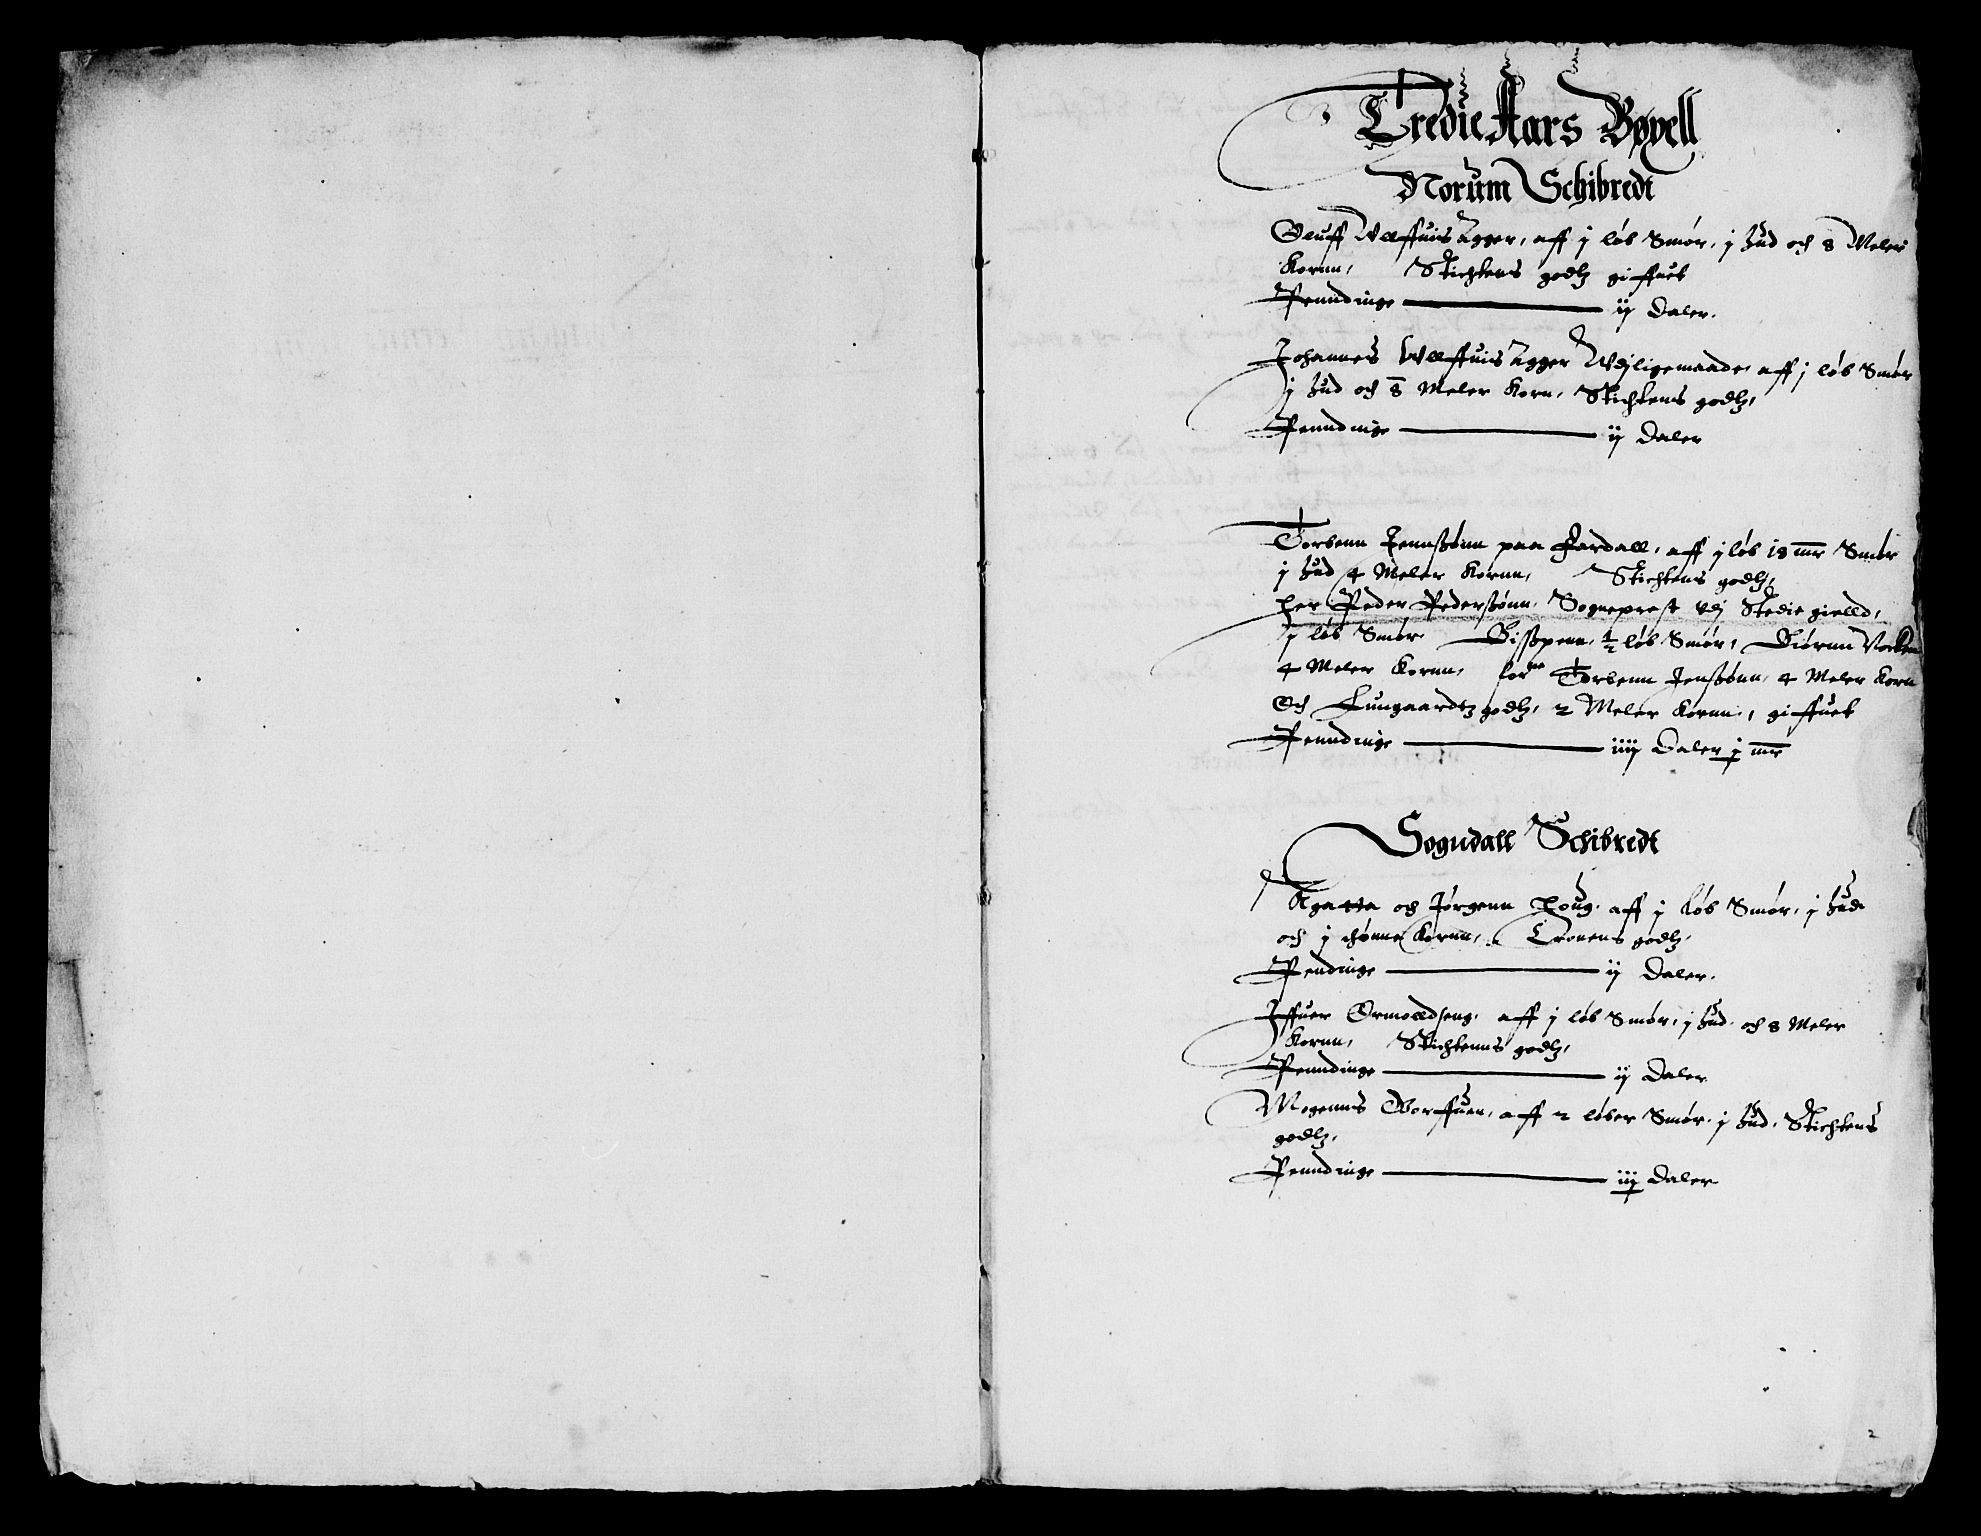 Tredie Aars Bøxell
Norum Schibredt
Oluff Ulffuis Agger, aff j løb Smør, j hud och 8 Meler
Kornn, Stichtens godtz giffuet
Penndinge ij Daler.
Johannes Ulffuis Agger Vdj ligemaade, aff j løb Smør
j hud och 8 Meler Korn, Stichtens godtz,
Penndinge ij Daler
Torbenn Jennssønn paa Fardall, aff j løb 18 mr Smør
j hud 4 Meler Kornn, Stichtens godtz,
her Peder Pederssønn, Sogneprest vdj Stedie gielld,
j løb Smør Bisspenn, ½ løb Smør, Biørnn
4 Meler Kornn, forne Torbenn Jenssønn, 4 Meler Korn
Och Lungaardtz godtz, 2 Meler Kornn, giffuet
Penndinge iiij Daler j mr
Sogndall Schibredt
Agatta och Jørgenn Houg, aff j løb Smør, j hud
och j Kornn, Cronens godtz,
Pendinge ij Daler.
Iffuer aff j løb Smør, j hud och 8 Meler
Kornn, Stichtenns godtz,
Penndinge ij Daler
Mogenns aff 2 løber Smør, j hud, Stichtens
godtz,
Penndinge iiij Daler
2